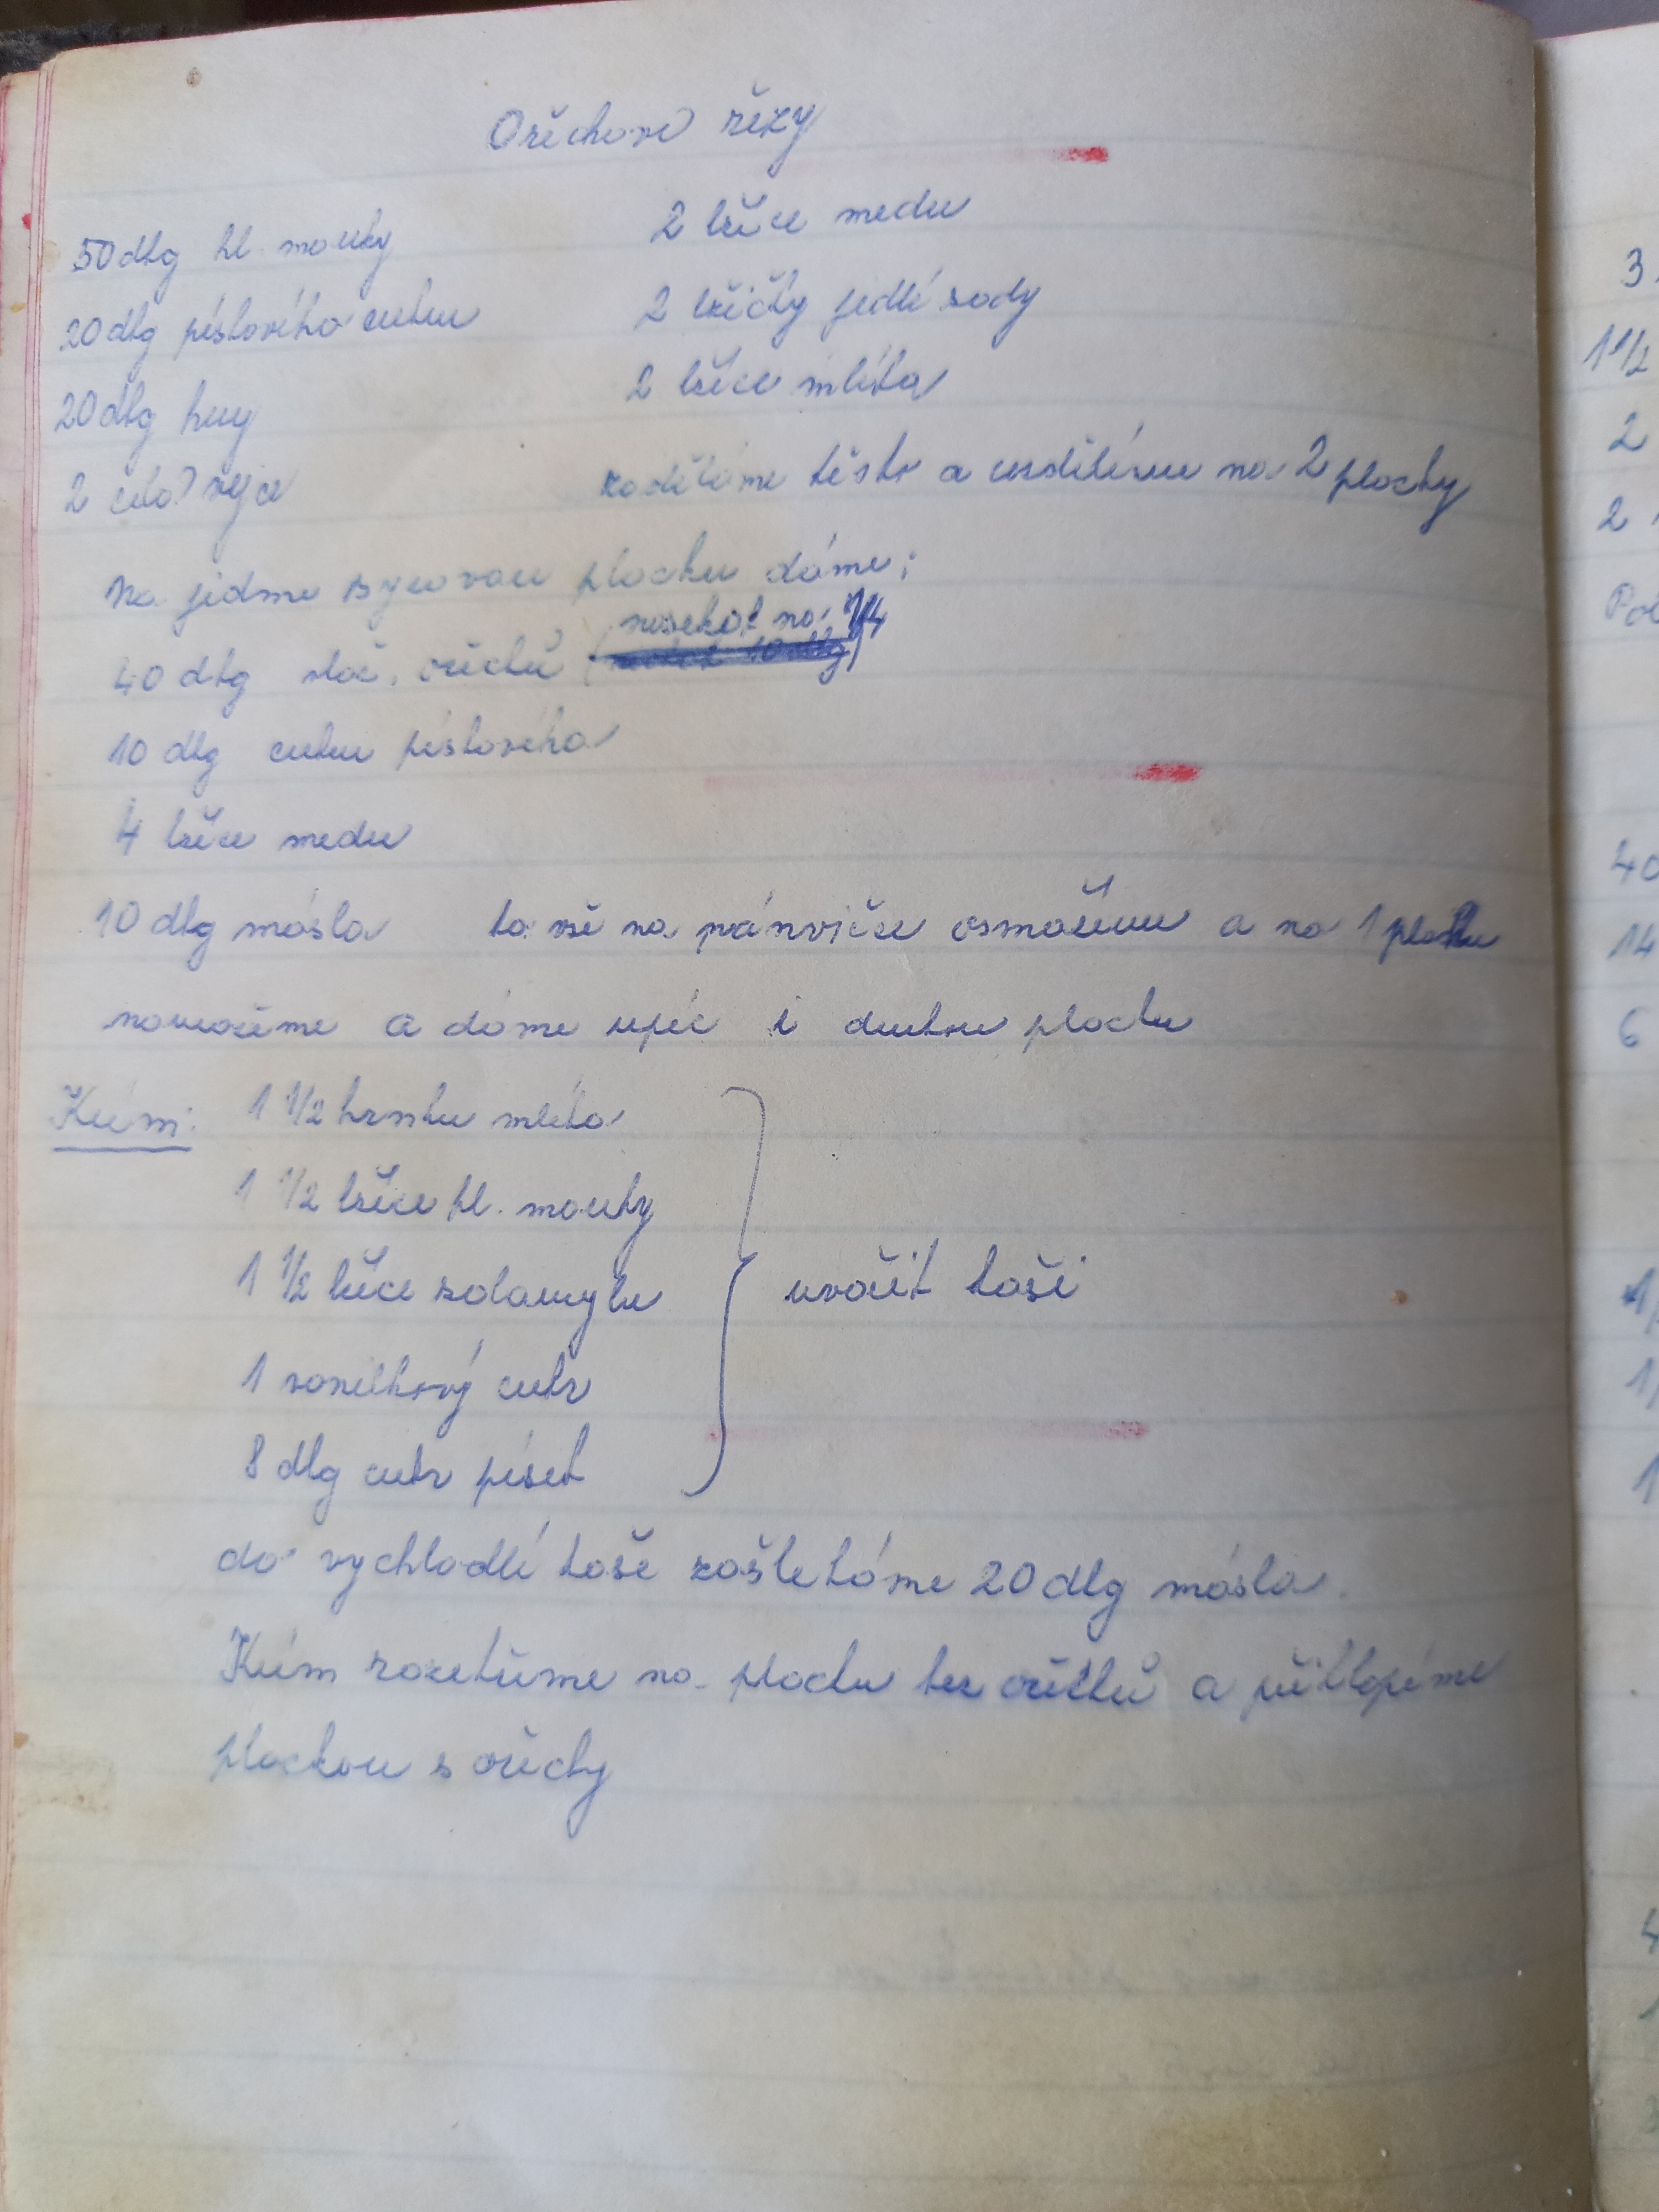 Ořechové řezy
50 dkg hl. mouky
20 dkg pískového cukru
20 dkg hery
2 celá vejce
2 lžíce medu
2 lžičky jedlé sody
2 lžíce mléka
zaděláme těsto a rozdělíme na 2 placky
na jednu syrovou placku dáme:
nasekat na 1/4
40 dkg vlaš. ořechů
10 dkg cukru pískového
4 lžíce medu
10 dkg másla to vše na pánvičce osmažíme a na 1 placku
navrsíme a dáme upéc i druhou placku
Krém: 1 1/2 hrnku mléka
1 1/2 lžíce hl. mouky
1 1/2 lžíce solamylu
1 vanilkový cukr
8 dkg cukr písek
uvařit kaši
do vychladlé kaše zašleháme 20 dkg másla.
Krém rozetřeme na placku bez ořechů a přiklopíme
plackou s ořechy
3
1 1/2
2
2
40
14
6
1